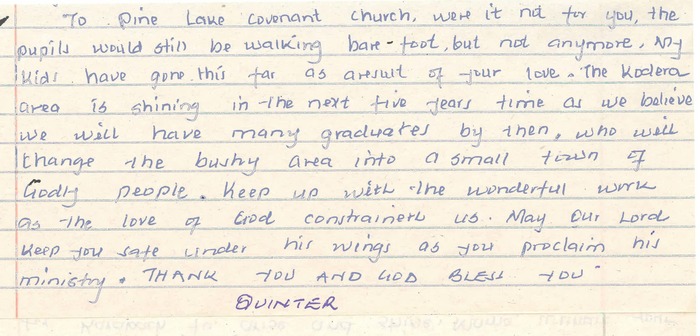 To Pine Lake Covenant church, were it not for you, the
pupils would still be walking bare-foot, but not anymore. My
kids have gone this far as aresult of your love. The Kodera
area is shining in the next five years time as we believe
we will have many graduates by then, who will
change the bushy area into a small town of
Godly people. Keep up with the wonderful work
as the love of God constraineth us. May Our Lord
keep you safe under his wings as you proclaim his
ministry. THANK YOU AND GOD BLESS YOU
QUINTER